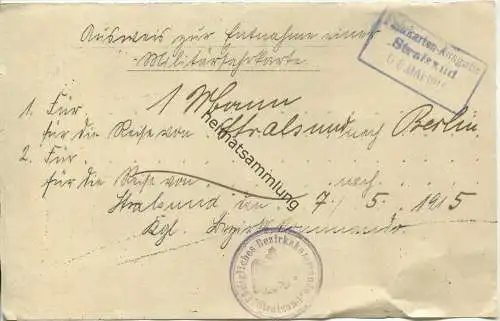 Ausweis zur Entnahme einer
Militärfahrkarte.
Fahrkarten-Ausgabe
Stralsund
1. Für 1 Mann
für die Reise von Stralsund nach Berlin.
2. Für
für die Reise von nach
Stralsund den 7/5. 1915
Kgl. Bezirkskommando
Königliches Bezirkskommando
Stralsund
heimatsammlung.de